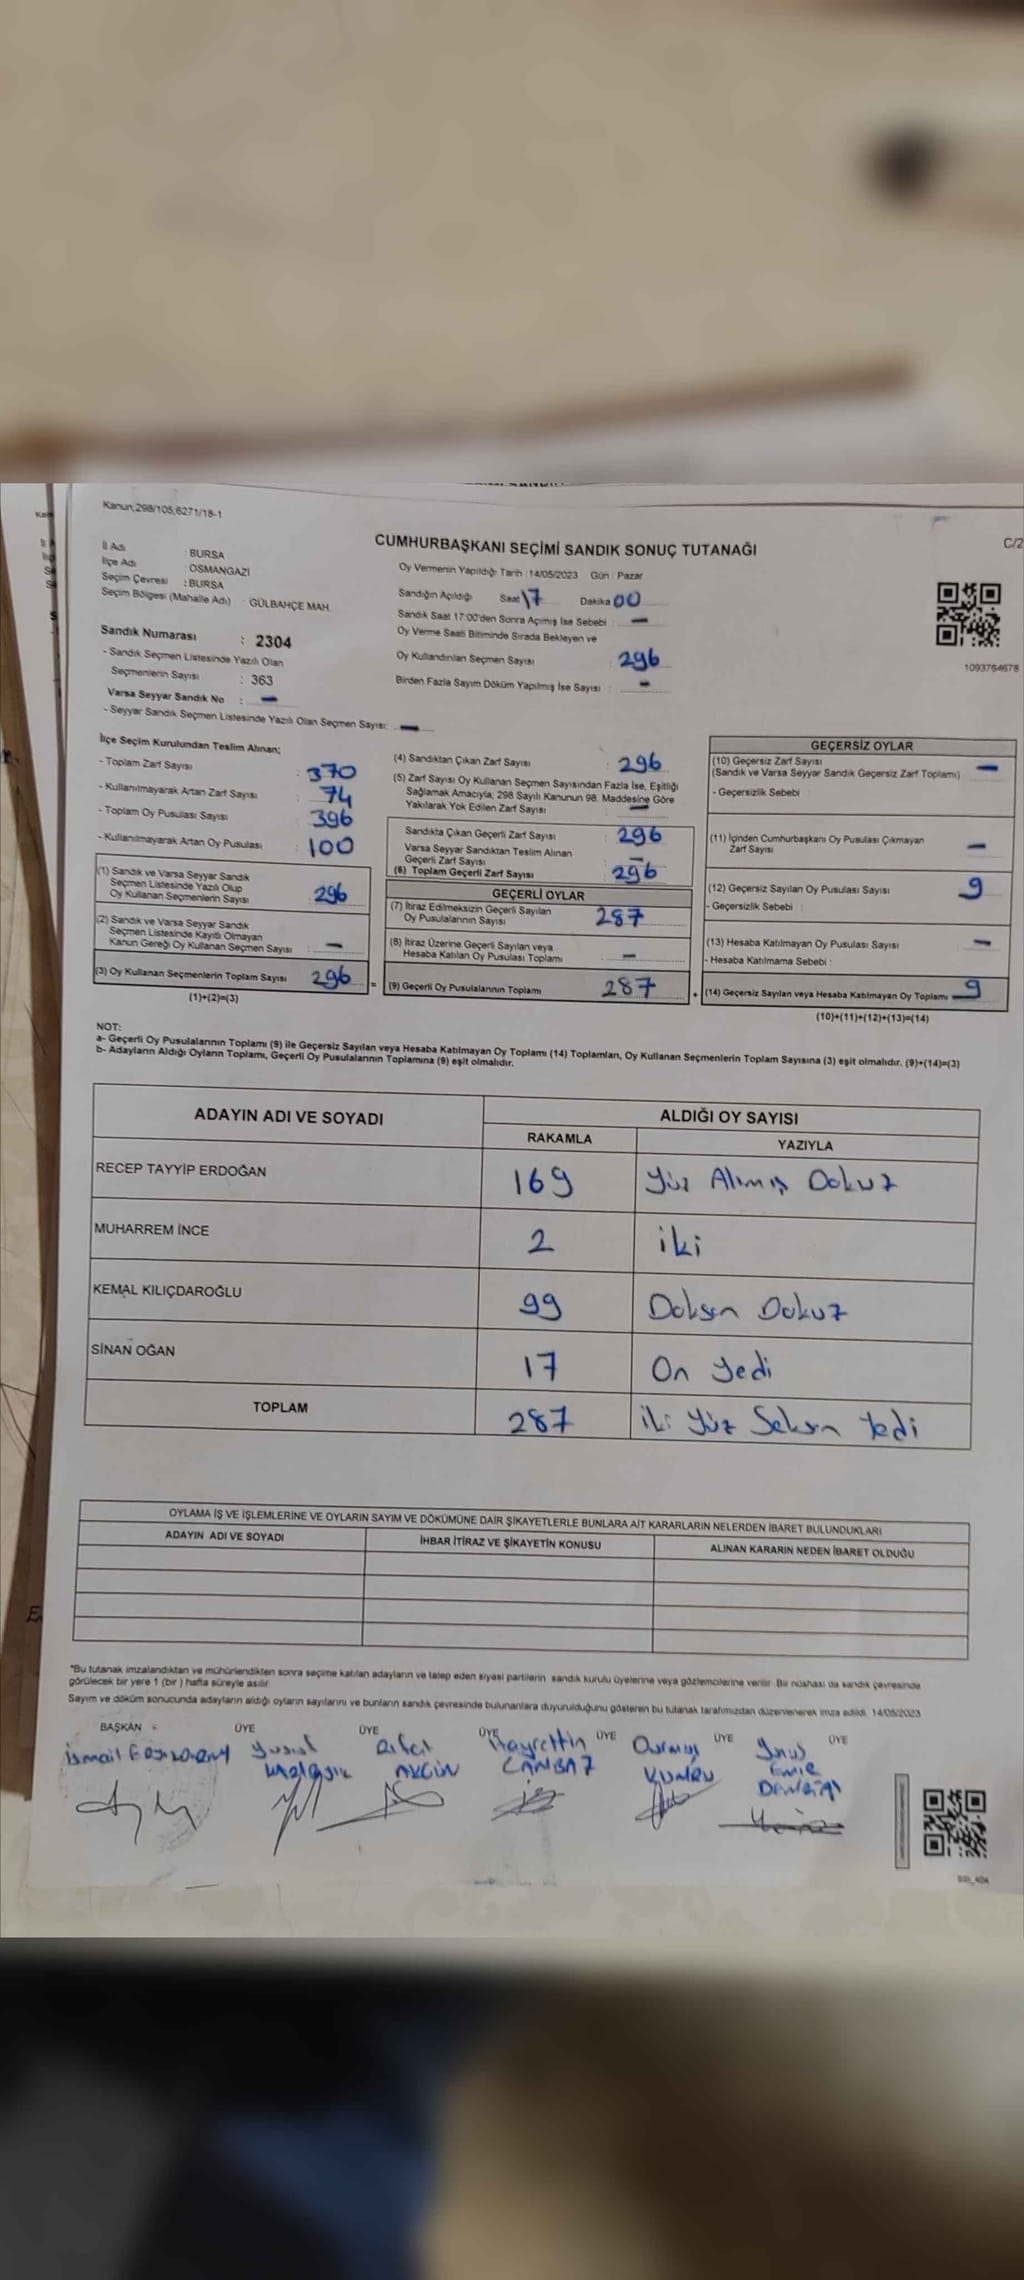 Kanun;298/105;6271/18-1
C/2
CUMHURBAŞKANI SEÇİMİ SANDIK SONUÇ TUTANAĞI
İl Adı : BURSA
İlçe Adı : OSMANGAZI
Seçim Çevresi : BURSA
Seçim Bölgesi (Mahalle Adı) : GÜLBAHÇE MAH.
Sandık Numarası : 2304
- Sandık Seçmen Listesinde Yazılı Olan
Seçmenlerin Sayısı : 363
Varsa Seyyar Sandık No : -
- Seyyar Sandık Seçmen Listesinde Yazılı Olan Seçmen Sayısı: -
Oy Vermenin Yapıldığı Tarih : 14/05/2023 Gün : Pazar
Sandığın Açıldığı Saat 17 Dakika 00
Sandık Saat 17:00'den Sonra Açımış İse Sebebi : -
Oy Verme Saati Bitiminde Sırada Bekleyen ve
Oy Kullandırılan Seçmen Sayısı : 296
Birden Fazla Sayım Döküm Yapılmış İse Sayısı : -
1093764678
İlçe Seçim Kurulundan Teslim Alınan;
- Toplam Zarf Sayısı : 370
- Kullanılmayarak Artan Zarf Sayısı : 74
- Toplam Oy Pusulası Sayısı : 396
- Kullanılmayarak Artan Oy Pusulası : 100
(1) Sandık ve Varsa Seyyar Sandık
Seçmen Listesinde Yazılı Olup
Oy Kullanan Seçmenlerin Sayısı : 296
(2) Sandık ve Varsa Seyyar Sandık
Seçmen Listesinde Kayıtlı Olmayan
Kanun Gereği Oy Kullanan Seçmen Sayısı : -
(3) Oy Kullanan Seçmenlerin Toplam Sayısı 296 =
(1)+(2)=(3)
(4) Sandıktan Çıkan Zarf Sayısı : 296
(5) Zarf Sayısı Oy Kullanan Seçmen Sayısından Fazla İse, Eşitliği
Sağlamak Amacıyla; 298 Sayılı Kanunun 98. Maddesine Göre
Yakılarak Yok Edilen Zarf Sayısı : -
Sandıkta Çıkan Geçerli Zarf Sayısı : 296
Varsa Seyyar Sandıktan Teslim Alınan
Geçerli Zarf Sayısı : -
(6) Toplam Geçerli Zarf Sayısı : 296
GEÇERLİ OYLAR
(7) İtiraz Edilmeksizin Geçerli Sayılan
Oy Pusulalarının Sayısı 287
(8) İtiraz Üzerine Geçerli Sayılan veya
Hesaba Katılan Oy Pusulası Toplamı : -
(9) Geçerli Oy Pusulalarının Toplamı 287 +
GEÇERSİZ OYLAR
(10) Geçersiz Zarf Sayısı
(Sandık ve Varsa Seyyar Sandık Geçersiz Zarf Toplamı) -
- Geçersizlik Sebebi :
(11) İçinden Cumhurbaşkanı Oy Pusulası Çıkmayan
Zarf Sayısı -
(12) Geçersiz Sayılan Oy Pusulası Sayısı 9
- Geçersizlik Sebebi :
(13) Hesaba Katılmayan Oy Pusulası Sayısı -
- Hesaba Katılmama Sebebi :
(14) Geçersiz Sayılan veya Hesaba Katılmayan Oy Toplamı 9
(10)+(11)+(12)+(13)=(14)
NOT:
a- Geçerli Oy Pusulalarının Toplamı (9) ile Geçersiz Sayılan veya Hesaba Katılmayan Oy Toplamı (14) Toplamları, Oy Kullanan Seçmenlerin Toplam Sayısına (3) eşit olmalıdır. (9)+(14)=(3)
b- Adayların Aldığı Oyların Toplamı, Geçerli Oy Pusulalarının Toplamına (9) eşit olmalıdır.
ADAYIN ADI VE SOYADI ALDIĞI OY SAYISI
RAKAMLA YAZIYLA
RECEP TAYYİP ERDOĞAN 169 Yüz Altmış Dokuz
MUHARREM İNCE 2 iki
KEMAL KILIÇDAROĞLU 99 Doksan Dokuz
SİNAN OĞAN 17 On Yedi
TOPLAM 287 iki Yüz Seksen Yedi
OYLAMA İŞ VE İŞLEMLERİNE VE OYLARIN SAYIM VE DÖKÜMÜNE DAİR ŞİKAYETLERLE BUNLARA AİT KARARLARIN NELERDEN İBARET BULUNDUKLARI
ADAYIN ADI VE SOYADI İHBAR İTİRAZ VE ŞİKAYETİN KONUSU ALINAN KARARIN NEDEN İBARET OLDUĞU
*Bu tutanak imzalandıktan ve mühürlendikten sonra seçime katılan adayların ve talep eden siyasi partilerin sandık kurulu üyelerine veya gözlemcilerine verilir. Bir nüshası da sandık çevresinde
görülecek bir yere 1 (bir ) hafta süreyle asılır.
Sayım ve döküm sonucunda adayların aldığı oyların sayılarını ve bunların sandık çevresinde bulunanlara duyurulduğunu gösteren bu tutanak tarafımızdan düzenlenerek imza edildi. 14/05/2023
BAŞKAN ÜYE ÜYE ÜYE ÜYE ÜYE ÜYE
ismail Yusuf Rıfat Hayrettin Durmuş Yunus
AKGÜN CANBAZ KUMRU EMRE